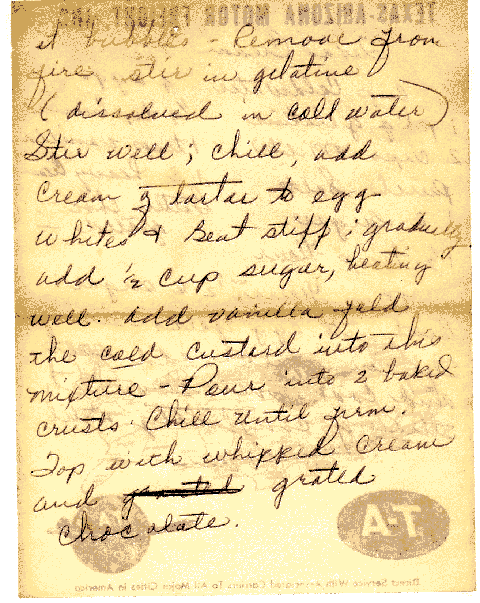 TEXAS-ARIZONA MOTOR FREIGHT, INC.
it bubbles - Remove from
fire stir in gelatine
(dissolved in cold water)
Stir well; chill, add
cream of tartar to egg
whites & beat stiff; gradually
add ½ cup sugar, beating
well. add vanilla fold
the cold custard into this
mixture - Pour into 2 baked
crusts. Chill until firm.
Top with whipped cream
and grated
chocolate.
T-A
Direct Service With Associated Carriers To All Major Cities in America